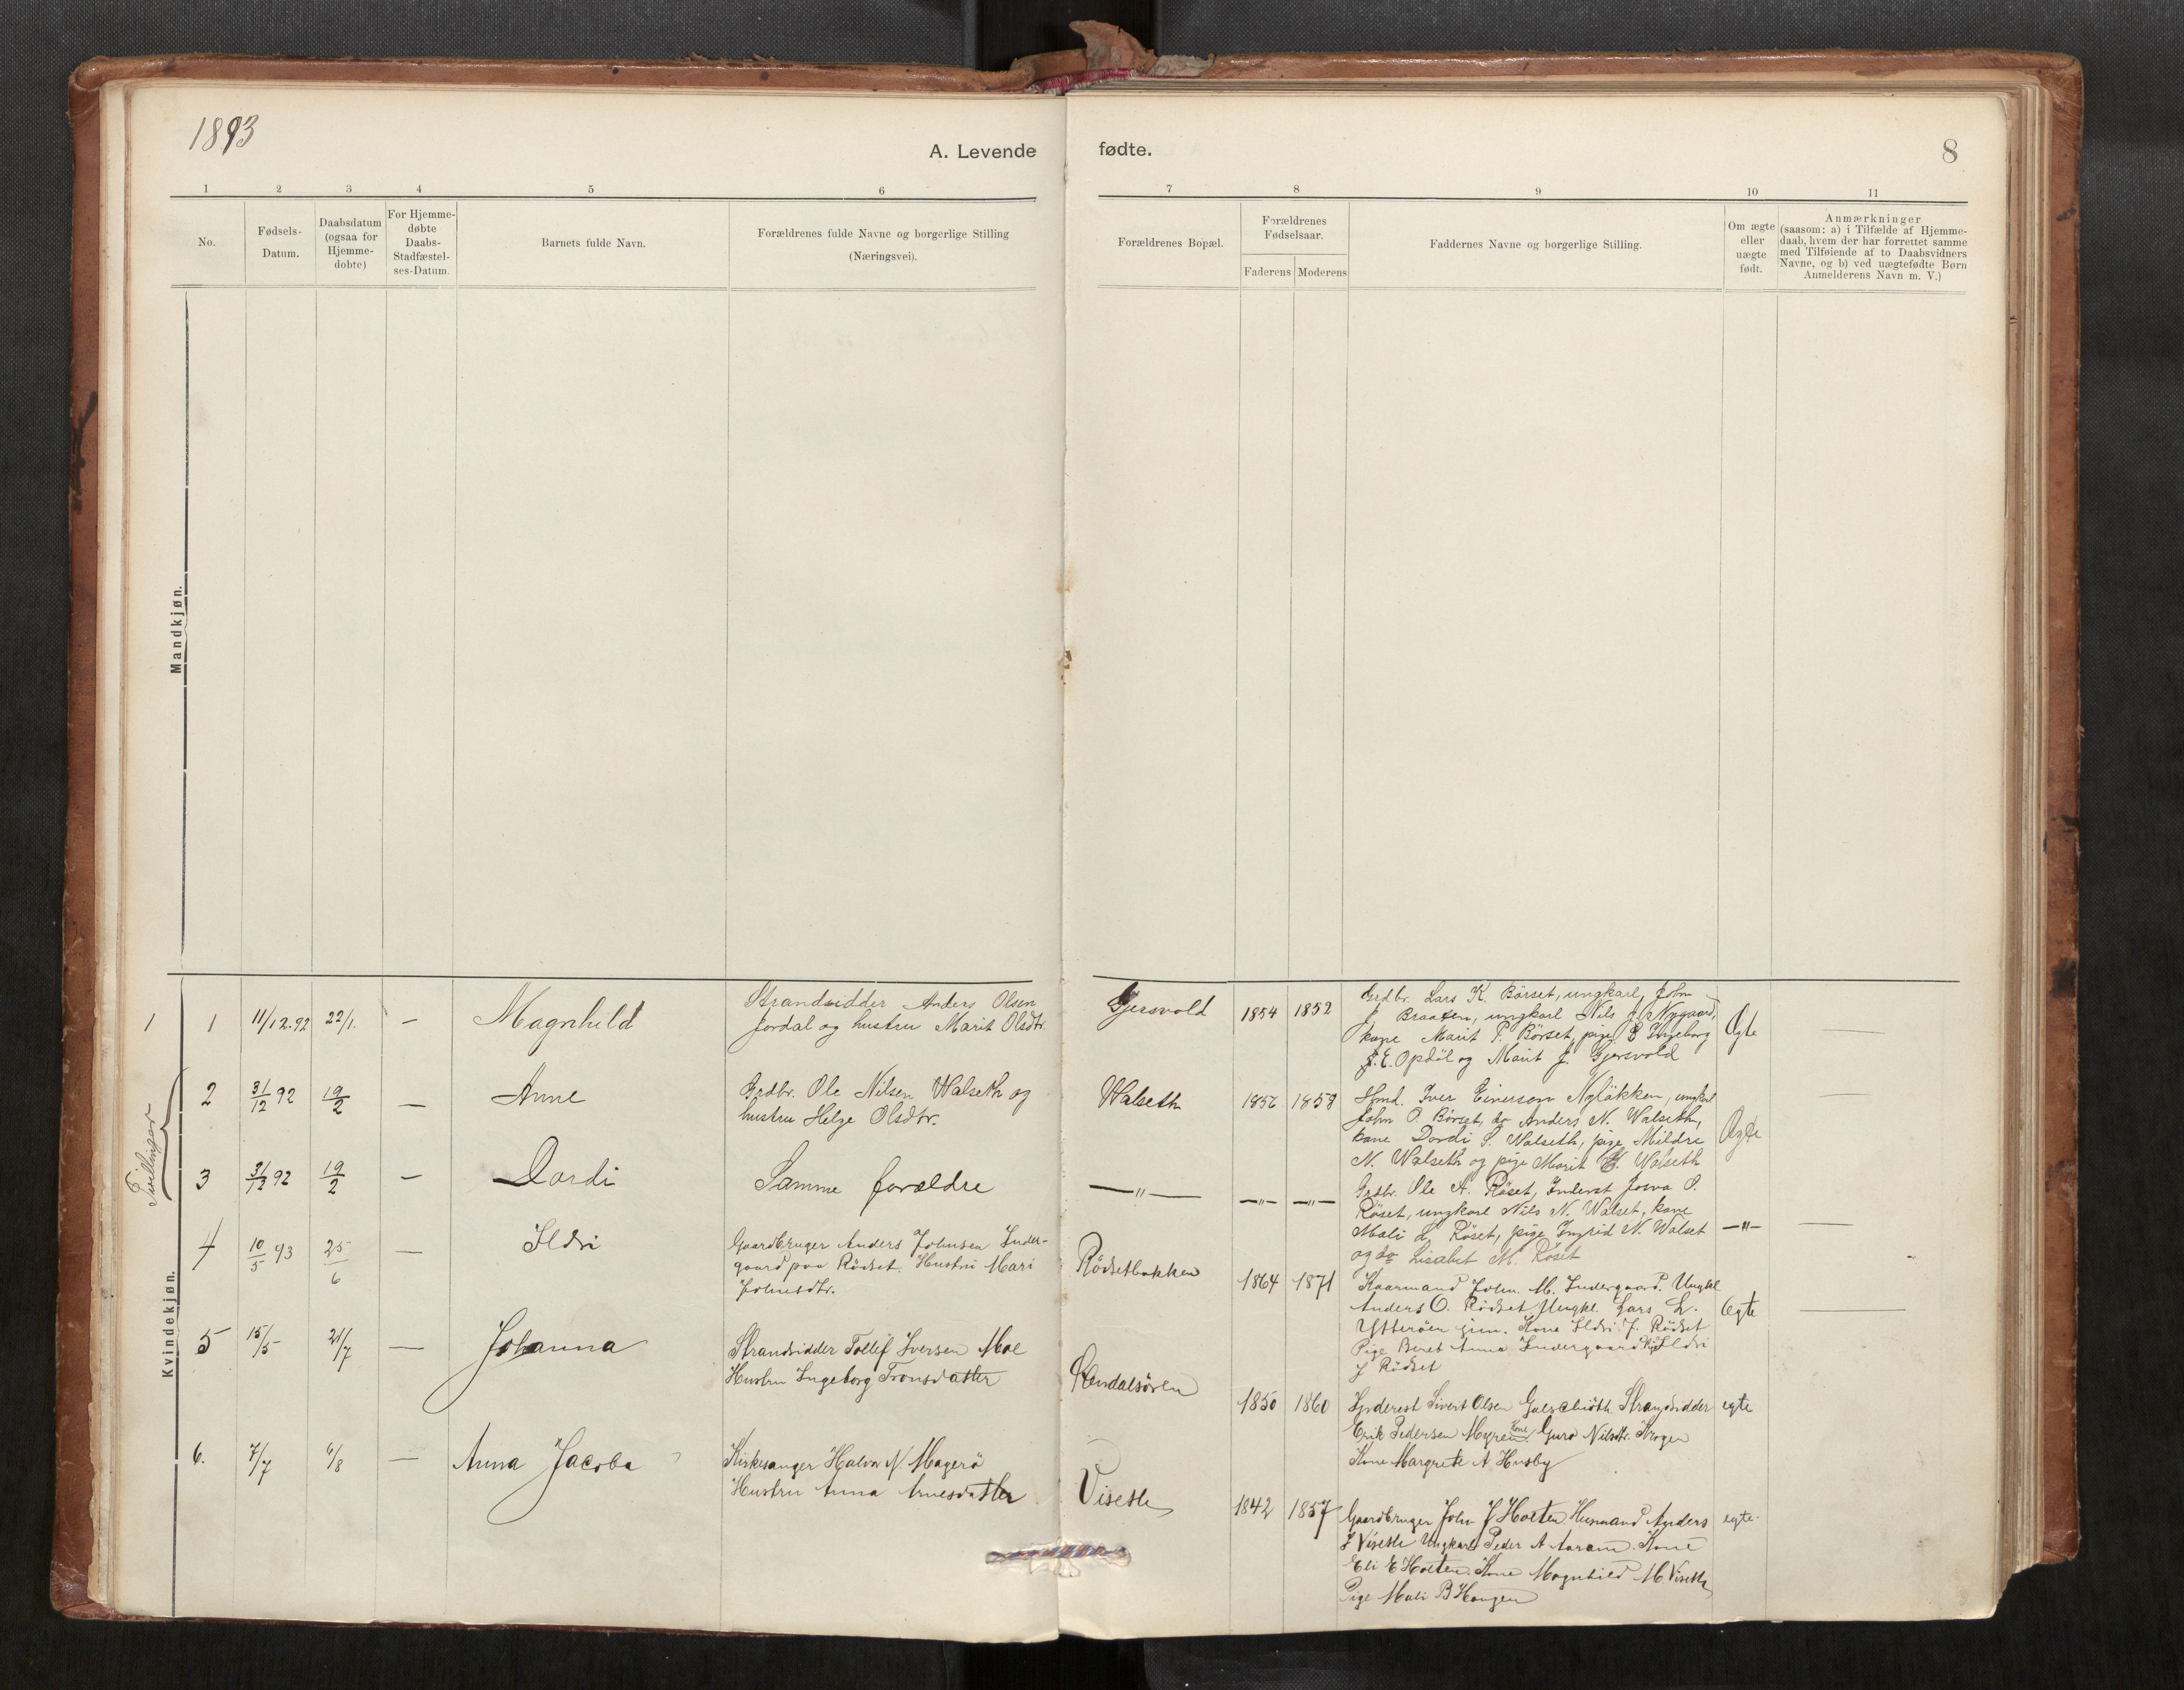 1893
A. Levende fødte.
8
1 2 3 4 5 6 7 8 9 10 11
No.
Fødsels-
Datum.
Daabsdatum
(ogsaa for
Hjemme-
døbte)
For Hjemme-
døbte
Daabs-
Stadfæstel-
ses-Datum.
Barnets fulde Navn.
Forældrenes fulde Navne og borgerlige Stilling
(Næringsvei).
Forældrenes Bopæl.
Forældrenes
Fødselsaar.
Faderens Moderens
Faddernes Navne og borgerlige Stilling.
Om ægte
eller
uægte
født.
Anmærkninger
(saasom: a) i Tilfælde af Hjemme-
daab, hvem der har forrettet samme
med Tilføiende af to Daabsvidners
Navne, og b) ved uægtefødte Børn
Anmelderens Navn m. V.)
Mandkjøn.
Kvindekjøn.
Tvillinger
1 1 11/12.92 22/1. — Magnhild
Strandsidder Anders Olsen
Jordal og hustru Marit Olsdtr.
Gjersvold
1854 1852
Grdbr. Lars K. Börset, ungkarl John
J. Braaten, ungkarl Nils J. Nygaard,
kone Marit P. Börset, pige Ingeborg
E. Opdöl og Marit J. Gjersvold
Ægte
2 31/12 92 19/2 — Anne
Grdbr. Ole Nilsen Walseth og
hustru Helge Olsdtr.
Walseth
1856 1858
Hmd. Iver Einerson Nyløkken, ungkarl
John O. Börset, do Anders N. Walseth,
kone Dordi S. Walseth, pige Mildre
N. Walseth og pige Marit Walseth
Ægte
3 31/12 92 19/2 — Dordi
Samme forældre
—"— —"— —"—
Grdbr. Ole A. Röset, Inderst Josva O.
Röset, ungkarl Nils N. Walset, kone
Mali L. Röset, pige Ingrid N. Walset
og do Lisabet M. Röset
—"—
4 10/5 93 25/6 — Ildri
Gaardbruger Anders Johnsen Inder-
gaard paa Rödset. Hustru Mari
Johnsdtr.
Rödsetbakken
1864 1871
Kaarmand John M. Indergaard. Ungkl
Anders O. Rödset Ungkl. Lars L.
Ytteröen jun. Kone Ildri J. Rödset
Pige Beret Anna Indergaard Pige Ildri
J Rödset
Ægte
5 15/5 21/7 — Johanna
Strandsidder Tollef Iversen Moe
Hustru Ingeborg Tronsdatter
1850 1860
Inderst Sivert Olsen Strandsidder
Erik Pedersen Myren Kone Guro Nilsdtr. Krogen
Kone Margrete A Husby
egte
6. 7/7 6/8 — Anna Jacoba
Kirkesanger Halvor N Magerö
Hustru Anna Arnesdatter
Viseth
1842 1857
Gaardbruger John J Holten Husmand Anders
J Viseth Ungkarl Peder A Aaram. Kone
Eli E Holten. Kone Magnhild M. Viseth
Pige Mali B Haugen
egte.